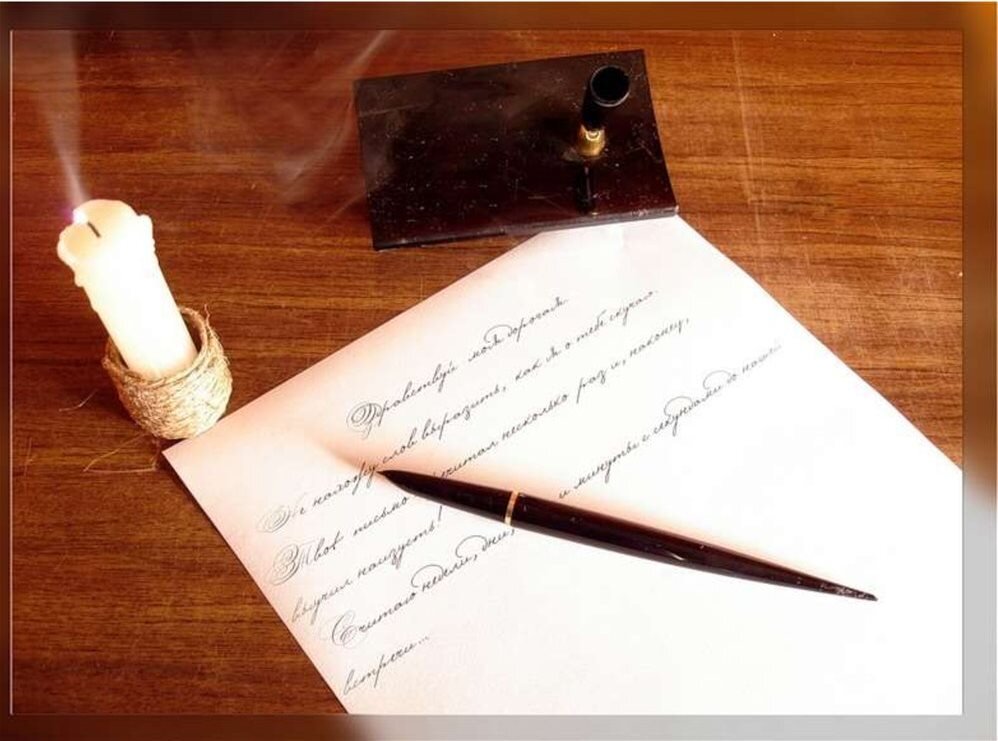 Здравствуй моя дорогая.
Не нахожу слов выразить, как я о тебе скучал.
Твоё письмо прочитал несколько раз и, наконец,
выучил наизусть!
Считаю недели, дни, и минуты с секундами до нашей
встречи...